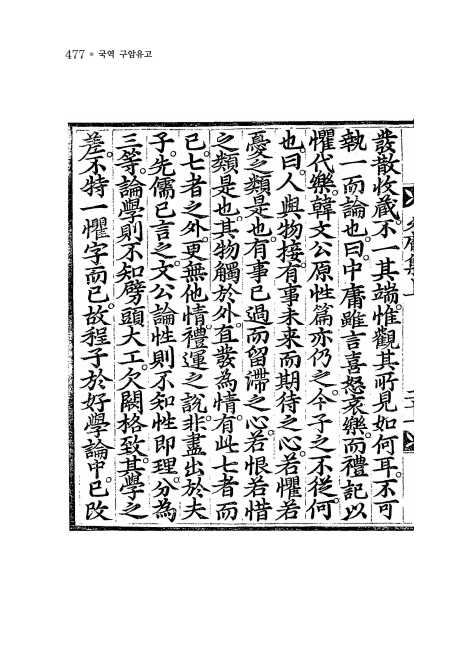 477 ● 국역 구암유고
發散收藏不一其端惟觀其所見如何耳不可
執一而論也曰中庸雖言喜怒哀樂而禮記以
懼代樂韓文公原性篇亦仍之今子之不從何
也曰人與物接有事未來而期待之心若懼若
憂之類是也有事已過而留滯之心若恨若惜
之類是也其物觸於外直發為情有此七者而
已七者之外更無他情禮運之說非盡出於夫
子先儒已言之文公論性則不知性即理分為
三等論學則不知劈頭大工欠闕格致其學之
差不特一懼字而已故程子於好學論中已改